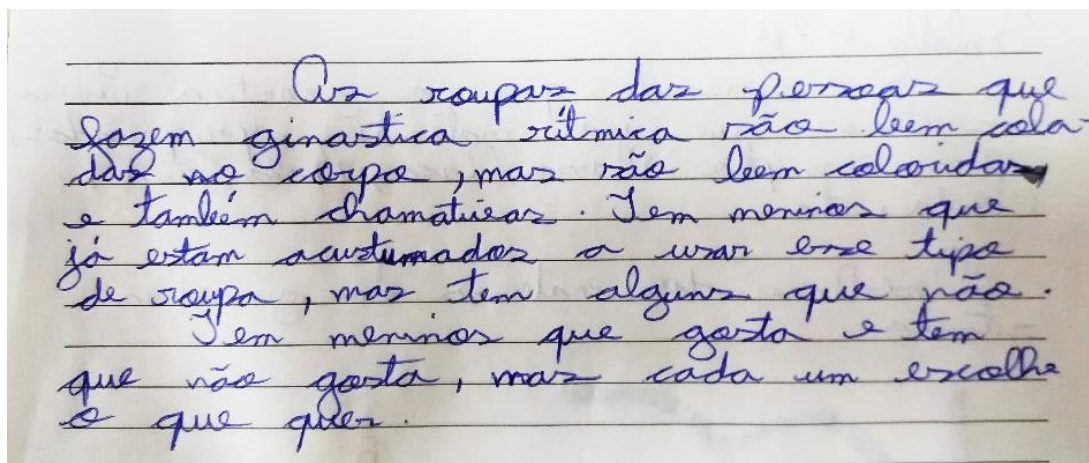 As roupas das pessoas que
fazem ginastica rítmica são bem cola-
das no corpo, mas são bem coloridas
e também chamativas. Tem meninos que
já estam acustumados a usar esse tipo
de roupa, mas tem alguns que não.
Tem meninos que gosta e tem
que não gosta, mas cada um escolhe
o que quer.